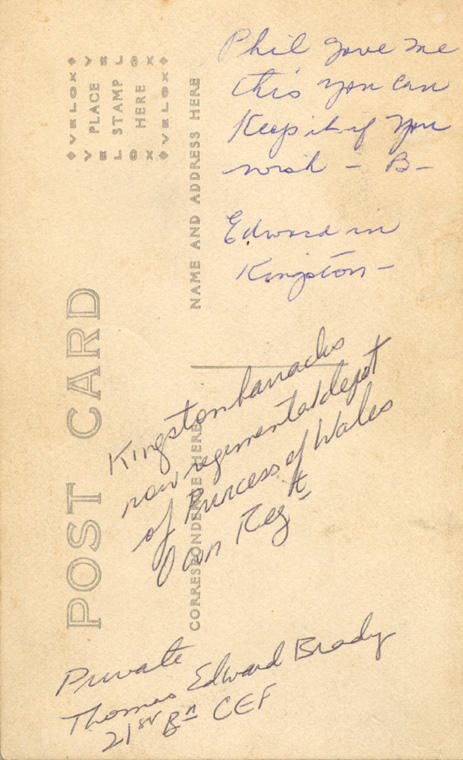 Phil gave me
this you can
Keep it if you
wish - B-
Edward in
Kingston-
Kingston barracks
now regimental depot
of Princess of Wales
Own Regt
Private
Thomas Edward Brady
21st Bn CEF
POST CARD
CORRESPONDENCE HERE
NAME AND ADDRESS HERE
PLACE
STAMP
HERE
VELOX
VELOX
VELOX
VELOX